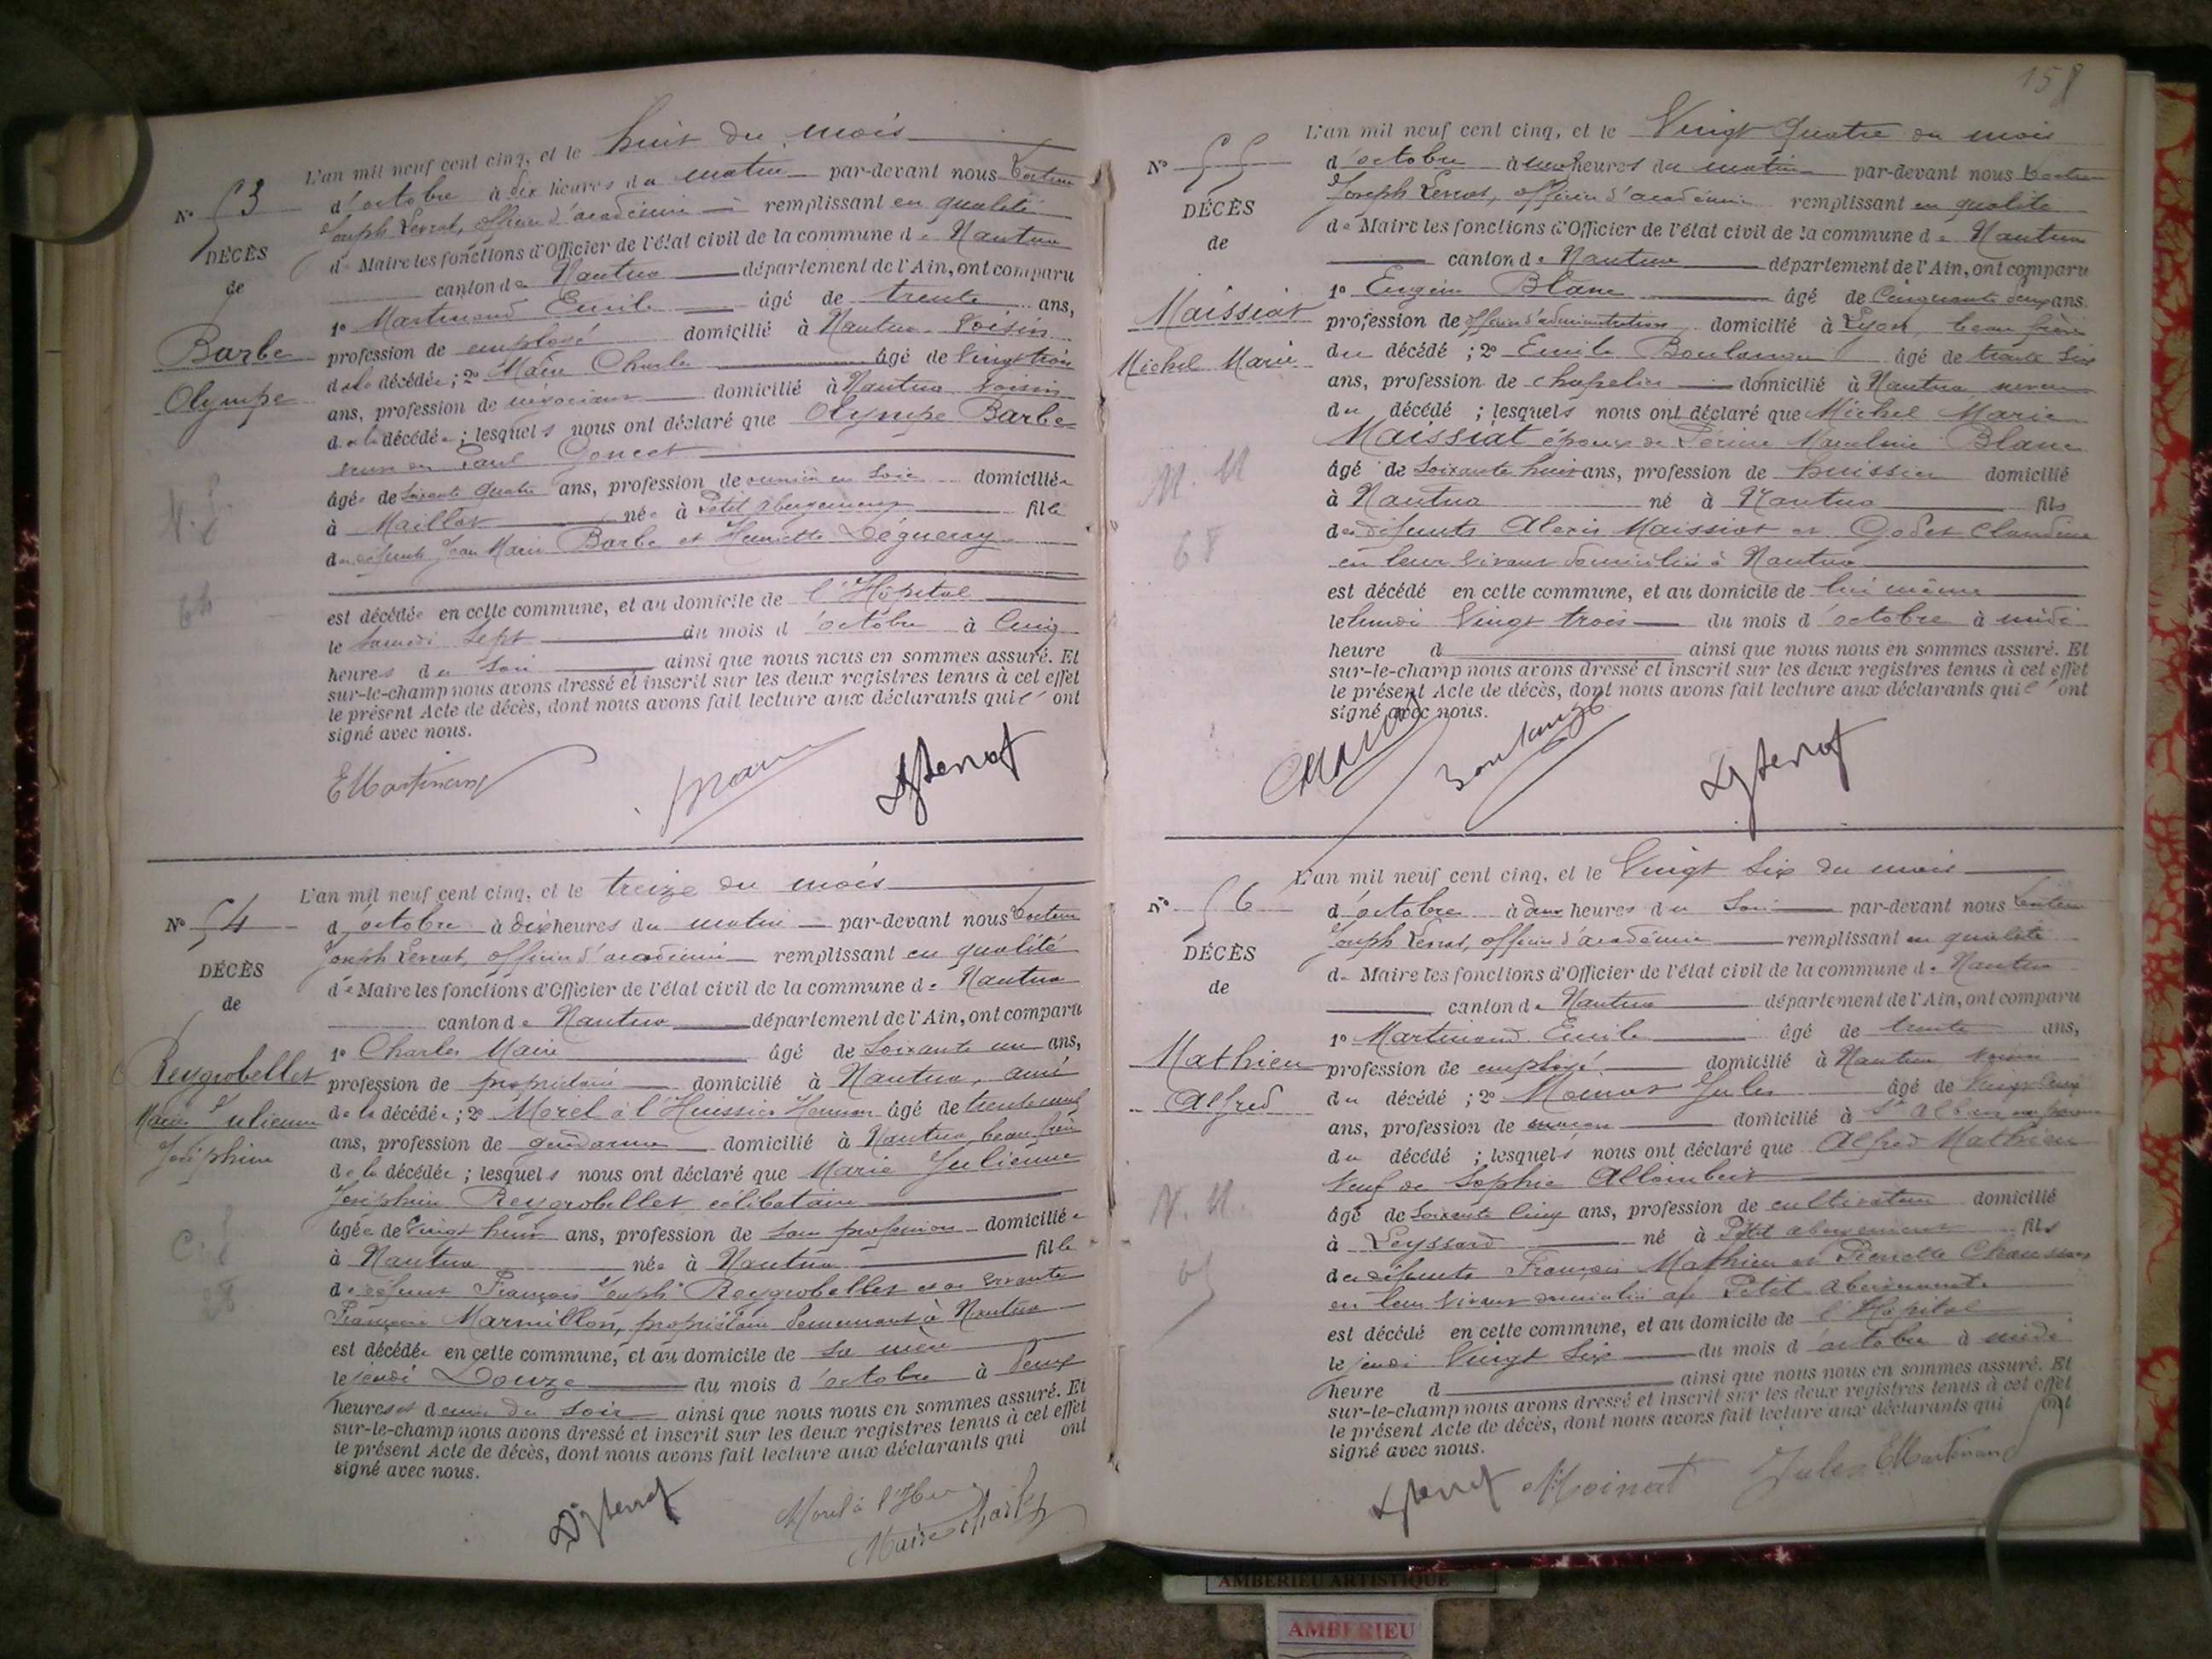 L'an mil neuf cent cinq, et le huit du mois
N° 53
d'octobre à dix heures du matin par-devant nous Docteur
Joseph Perrot, officier d'académie remplissant en qualité
DÉCÈS
de Maire les fonctions d'Officier de l'état civil de la commune de Nantua
de
canton de Nantua département de l'Ain, ont comparu
1° Martinand Emile âgé de trente ans,
Barbe
profession de employé domicilié à Nantua voisin
de la décédée ; 2° Maire Charles âgé de vingt trois
Olympe
ans, profession de négociant domicilié à Nantua voisin
de la décédée ; lesquels nous ont déclaré que Olympe Barbe
veuve de Paul Goncet
âgée de soixante quatre ans, profession de ouvrière en soie domiciliée
à Maillat née à Petit Abergement fille
des défunts Jean Marie Barbe et Henriette
64
est décédée en cette commune, et au domicile de l'Hôpital
le samedi sept du mois d'octobre à cinq
heures du soir ainsi que nous nous en sommes assuré. Et
sur-le-champ nous avons dressé et inscrit sur les deux registres tenus à cet effet
le présent Acte de décès, dont nous avons fait lecture aux déclarants qui l'ont
signé avec nous.
EMartinand
L'an mil neuf cent cinq, et le treize du mois
N° 54
d'octobre à dix heures du matin par-devant nous Docteur
Joseph Perrot, officier d'académie remplissant en qualité
DÉCÈS
de Maire les fonctions d'Officier de l'état civil de la commune de Nantua
de
canton de Nantua département de l'Ain, ont comparu
1° Charles Maire âgé de soixante un ans,
Reygrobellet
profession de propriétaire domicilié à Nantua, ami
Marie Julienne
de la décédée ; 2° Morel à l'Huissier Herman âgé de trente neuf
ans, profession de gendarme domicilié à Nantua, beau frère
Joséphine
de la décédée ; lesquels nous ont déclaré que Marie Julienne
Joséphine Reygrobellet célibataire
âgée de vingt huit ans, profession de sans profession domiciliée
à Nantua née à Nantua fille
de défunt François Joseph Reygrobellet et de vivante
28
Françoise Marmillon, propriétaire demeurant à Nantua
est décédée en cette commune, et au domicile de sa mère
le jeudi Douze du mois d'octobre à deux
heures et demie du soir ainsi que nous nous en sommes assuré. Et
sur-le-champ nous avons dressé et inscrit sur les deux registres tenus à cet effet
le présent Acte de décès, dont nous avons fait lecture aux déclarants qui ont
signé avec nous.
Morel à l'Hui
Maire Charles
158
L'an mil neuf cent cinq, et le Vingt Quatre du mois
N° 55
d'octobre à heures du matin par-devant nous Docteur
Joseph Perrot, officier d'académie remplissant en qualité
DÉCÈS
de Maire les fonctions d'Officier de l'état civil de la commune de Nantua
de
canton de Nantua département de l'Ain, ont comparu
1° Eugène Blanc âgé de cinquante deux ans.
Maissiat
profession de officier d'administration domicilié à Lyon, beau frère
Michel Marie
du décédé ; 2° Emile Boulanger âgé de trente six
ans, profession de chapelier domicilié à Nantua neveu
du décédé ; lesquels nous ont déclaré que Michel Marie
Maissiat époux de Blanc
M. N
âgé de soixante huit ans, profession de huissier domicilié
à Nantua né à Nantua fils
68
des défunts Alexis Maissiat et Godet Claudine
en leur vivant domiciliés à Nantua
est décédé en cette commune, et au domicile de lui même
le lundi Vingt trois du mois d'octobre à midi
heure d ainsi que nous nous en sommes assuré. Et
sur-le-champ nous avons dressé et inscrit sur les deux registres tenus à cet effet
le présent Acte de décès, dont nous avons fait lecture aux déclarants qui l'ont
signé avec nous.
Boulanger
L'an mil neuf cent cinq, et le Vingt Six du mois
N° 56
d'octobre à deux heures du soir par-devant nous Docteur
Joseph Perrot, officier d'académie remplissant en qualité
DÉCÈS
de Maire les fonctions d'Officier de l'état civil de la commune de Nantua
de
canton de Nantua département de l'Ain, ont comparu
1° Martinand Emile âgé de trente ans,
Mathieu
profession de employé domicilié à Nantua voisin
Alfred
du décédé ; 2° Moinat Jules âgé de vingt cinq
ans, profession de domicilié à St Alban
du décédé ; lesquels nous ont déclaré que Alfred Mathieu
Veuf de Sophie Allombert
V. N.
âgé de soixante cinq ans, profession de cultivateur domicilié
à Leyssard né à Petit abergement fils
65
des défunts François Mathieu et Pierrette
en leur vivant domiciliés au Petit Abergement
est décédé en cette commune, et au domicile de l'Hôpital
le jeudi Vingt Six du mois d'octobre à midi
heure d ainsi que nous nous en sommes assuré. Et
sur-le-champ nous avons dressé et inscrit sur les deux registres tenus à cet effet
le présent Acte de décès, dont nous avons fait lecture aux déclarants qui ont
signé avec nous.
Moinat Jules EMartinand
AMBERIEU ARTISTIQUE
AMBERIEU